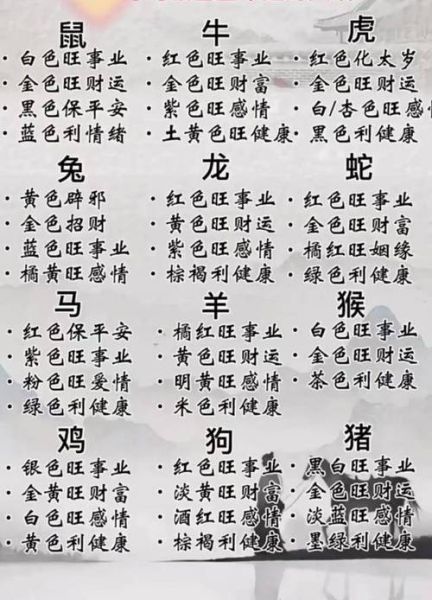 鼠
· 白色旺事业
· 金色旺财运
· 黑色保平安
· 蓝色利情绪
牛
· 红色旺事业
· 金色旺财富
· 紫色旺感情
· 土黄色旺健康
虎
· 红色化太岁
· 金色旺财运
· 白/杏色旺感情
· 黑色利健康
兔
· 黄色辟邪
· 金色招财
· 蓝色旺事业
· 橘黄旺感情
龙
· 红色旺事业
· 黄色旺财运
· 紫色旺感情
· 棕褐利健康
蛇
· 红色旺事业
· 金色旺财富
· 橘红旺姻缘
· 绿色利健康
马
· 红色保平安
· 紫色旺事业
· 粉色旺爱情
· 绿色利健康
羊
· 橘红旺事业
· 黄色旺财运
· 明黄旺感情
· 米色利健康
猴
· 白色旺事业
· 金色旺财运
· 茶色利健康
鸡
· 银色旺事业
· 金黄旺财富
· 白色旺感情
· 黄色利健康
狗
· 红色旺事业
· 淡黄旺财富
· 酒红旺感情
· 棕褐利健康
猪
· 黑白旺事业
· 金色旺财运
· 淡蓝旺感情
· 墨绿利健康